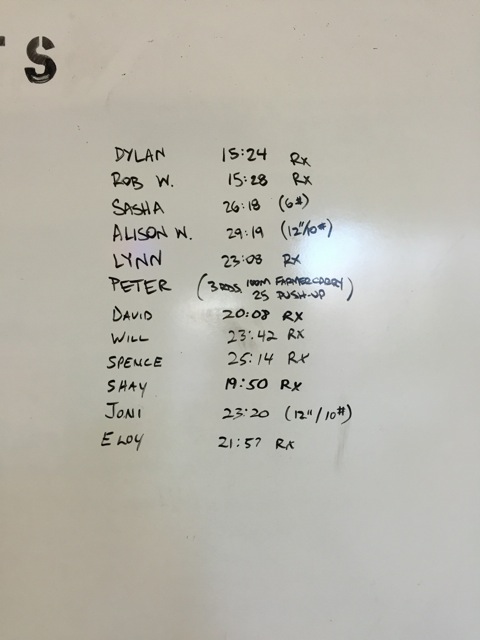 TS
DYLAN 15:24 Rx
ROB W. 15:28 Rx
SASHA 26:18 (6#)
ALISON W. 29:19 (12"/10#)
LYNN 23:08 Rx
PETER (3 RDS. 100M FARMER CARRY
25 PUSH-UP)
DAVID 20:08 RX
WILL 23:42 RX
SPENCE 25:14 RX
SHAY 19:50 RX
JONI 23:20 (12"/10#)
ELOY 21:57 RX